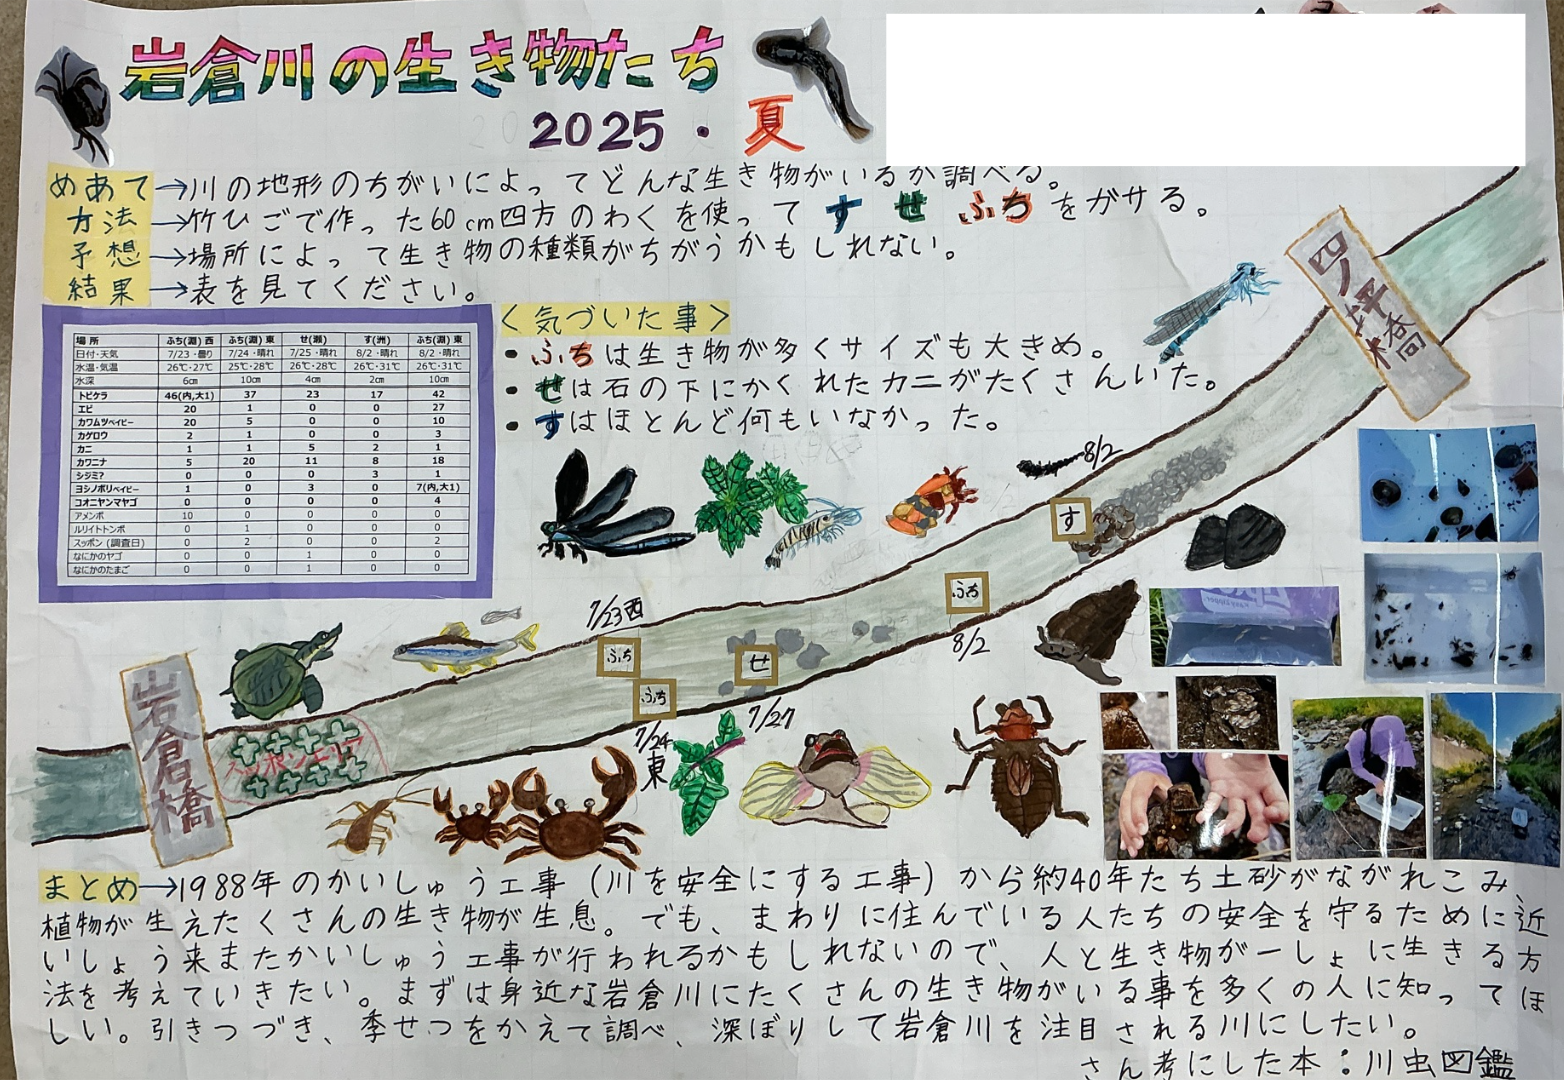 岩倉川の生き物たち
2025・夏
めあて→川の地形のちがいによってどんな生き物がいるか調べる。
方法→竹ひごで作った60cm四方のわくを使って す せ ふちをガサる。
予想→場所によって生き物の種類がちがうかもしれない。
結果→表を見てください。
場所 ふち(淵) 西 ふち(淵) 東 せ(瀬) す(洲) ふち(淵) 東
日付・天気 7/23・曇り 7/24・晴れ 7/25・晴れ 8/2・晴れ 8/2・晴れ
水温・気温 26℃・27℃ 25℃・28℃ 26℃・28℃ 26℃・31℃ 26℃・31℃
水深 6㎝ 10㎝ 4㎝ 2㎝ 10㎝
トビケラ 46(内,大1) 37 23 17 42
エビ 20 1 0 0 27
カワムツベイビー 20 5 0 0 10
カゲロウ 2 1 0 0 3
カニ 1 1 5 2 1
カワニナ 5 20 11 8 18
シジミ? 0 0 0 3 1
ヨシノボリベイビー 1 0 3 0 7(内,大1)
コオニヤンマヤゴ 0 0 0 0 4
アメンボ 10 0 0 0 0
ルリイトトンボ 0 1 0 0 0
スッポン(調査日) 0 2 0 0 2
なにかのヤゴ 0 0 1 0 0
なにかのたまご 0 0 1 0 0
<気づいた事>
・ふちは生き物が多くサイズも大きめ。
・せは石の下にかくれたカニがたくさんいた。
・すはほとんど何もいなかった。
四ノ坪橋
8/2
す
ふち
8/2
7/23西
ふち
せ
ふち
7/27
7/24東
岩倉橋
スッポンエリア
まとめ→1988年のかいしゅう工事(川を安全にする工事)から約40年たち土砂がながれこみ
植物が生えたくさんの生き物が生息。でも、まわりに住んでいる人たちの安全を守るために近
いしょう来またかいしゅう工事が行われるかもしれないので、人と生き物が一しょに生きる方
法を考えていきたい。まずは身近な岩倉川にたくさんの生き物がいる事を多くの人に知ってほ
しい。引きつづき、季せつをかえて調べ、深ぼりして岩倉川を注目される川にしたい。
さん考にした本：川虫図鑑